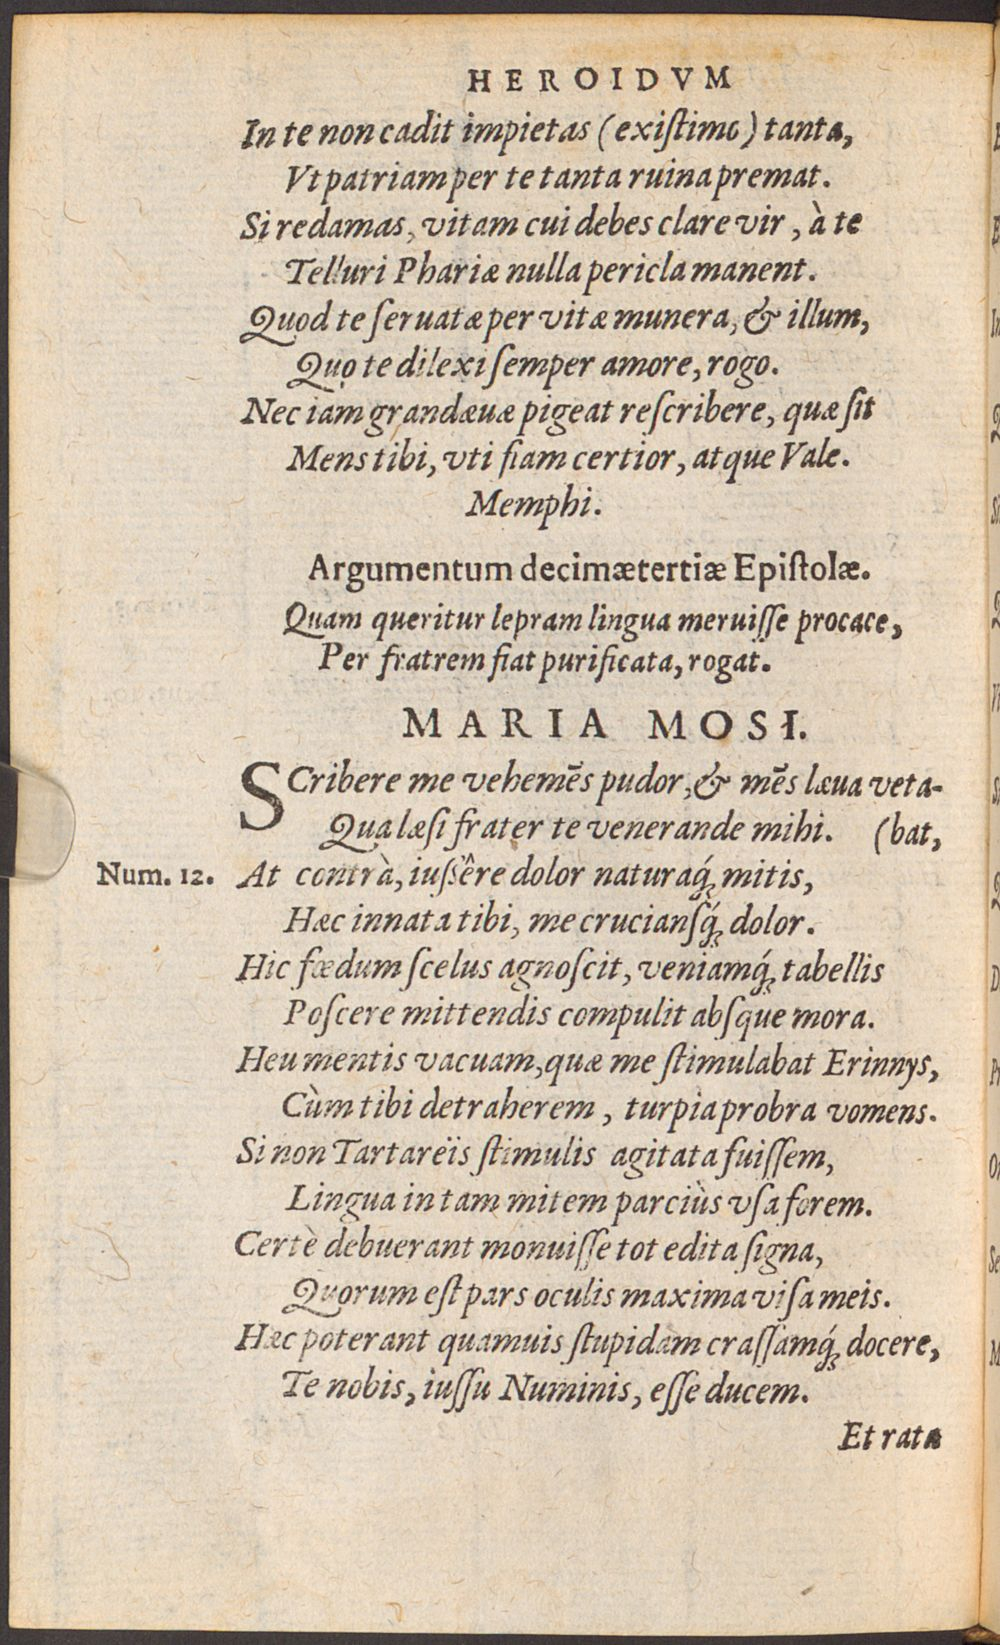 HEROIDVM
In te non cadit impietas (exiſtimo) tanta,
Vt patriam per te tanta ruina premat.
Si redamas, vitam cui debes clare vir, à te
Telluri Phariæ nulla pericla manent.
Quod te ſeruatæ per vitæ munera, & illum,
Quo te dilexi ſemper amore, rogo.
Nec iam grandæuæ pigeat reſcribere, quæ ſit
Mens tibi, vti fiam certior, atque Vale.
Memphi.
Argumentum decimætertiæ Epiſtolæ.
Quam queritur lepram lingua meruiſſe procace,
Per fratrem fiat purificata, rogat.
MARIA MOSI.
SCribere me vehemēs pudor, & mēs læua veta-
Qua læſi frater te venerande mihi. (bat,
Num. 12. At contrà, iuſsêre dolor naturaq́; mitis,
Hæc innata tibi, me crucianſq́; dolor.
Hic fœdum ſcelus agnoſcit, veniamq́; tabellis
Poſcere mittendis compulit abſque mora.
Heu mentis vacuam, quæ me ſtimulabat Erinnys,
Cùm tibi detraherem, turpia probra vomens.
Si non Tartareïs ſtimulis agitata fuiſſem,
Lingua in tam mitem parciùs vſa forem.
Certè debuerant monuiſſe tot edita ſigna,
Quorum eſt pars oculis maxima viſa meis.
Hæc poterant quamuis ſtupidam craſſamq́; docere,
Te nobis, iuſſu Numinis, eſſe ducem.
Et rata